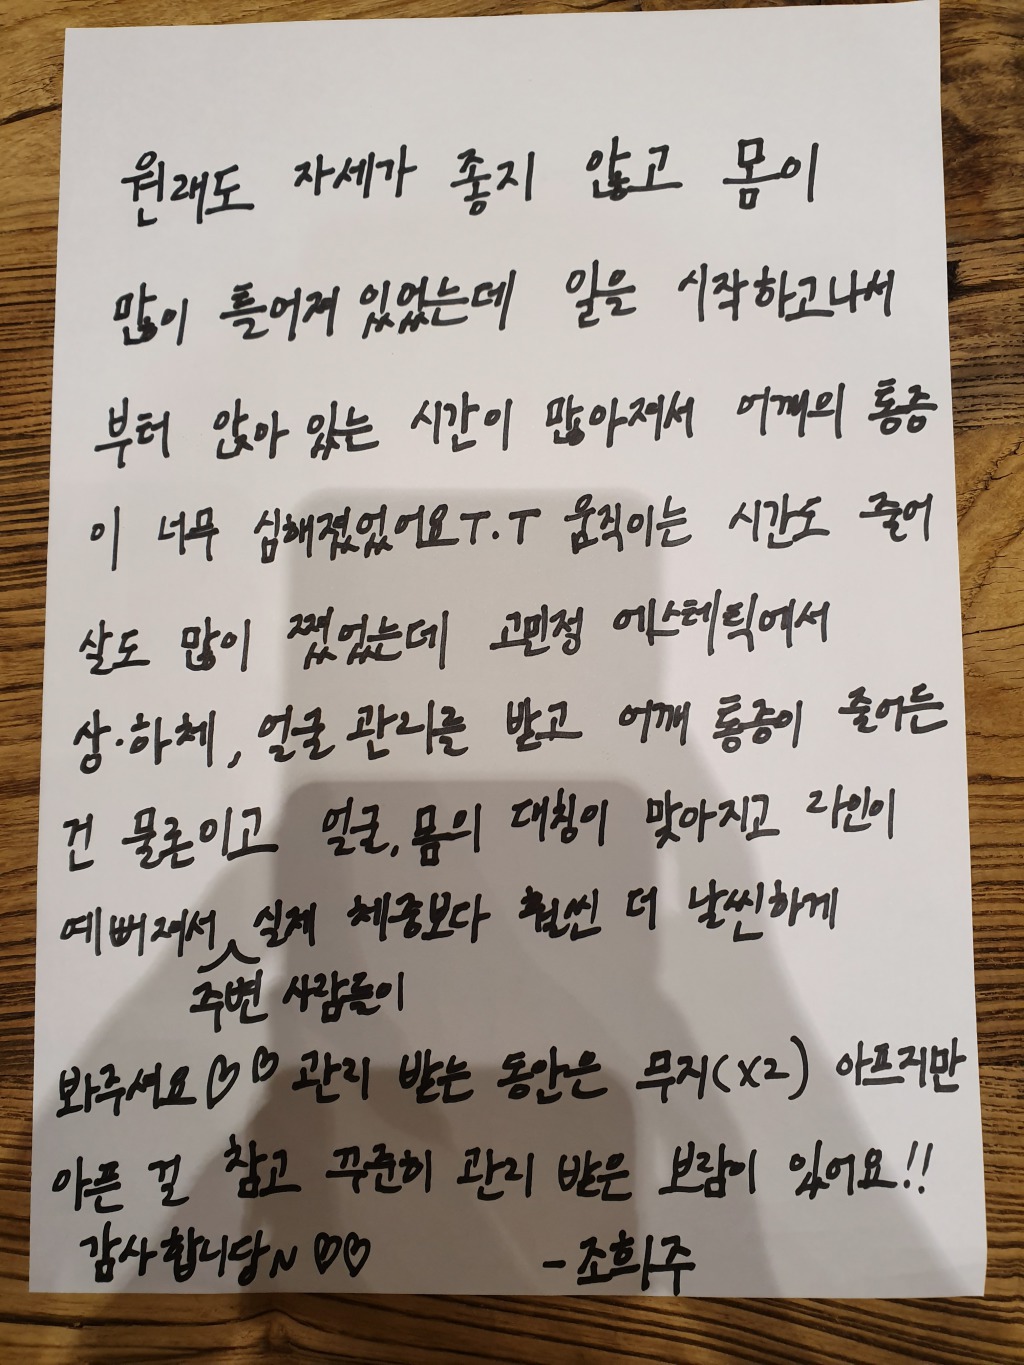 원래도 자세가 좋지 않고 몸이
많이 틀어져 있었는데 일을 시작하고나서
부터 앉아 있는 시간이 많아져서 어깨의 통증
이 너무 심해졌었어요T.T 움직이는 시간도 줄어
살도 많이 쪘었는데 고민정 에스테틱에서
상·하체, 얼굴 관리를 받고 어깨 통증이 줄어든
건 물론이고 얼굴, 몸의 대칭이 맞아지고 라인이
예뻐져서 실제 체중보다 훨씬 더 날씬하게
주변 사람들이
봐주셔요♡♡ 관리 받는 동안은 무지(x2) 아프지만
아픈 걸 참고 꾸준히 관리 받은 보람이 있어요!!
감사합니당~ ♡♡ -조희주